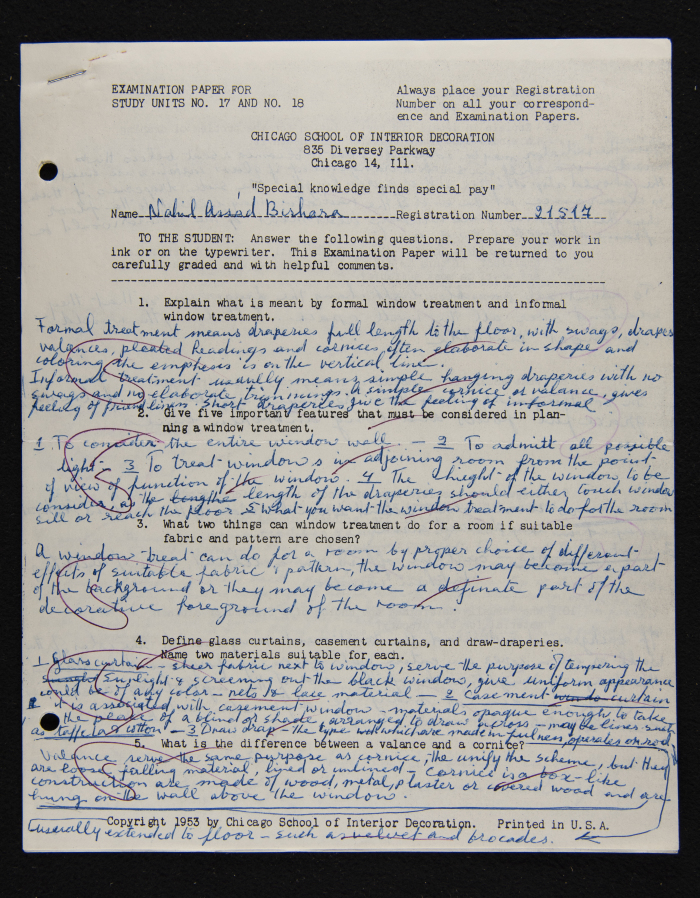 EXAMINATION PAPER FOR
STUDY UNITS NO. 17 AND NO. 18
Always place your Registration
Number on all your correspond-
ence and Examination Papers.
CHICAGO SCHOOL OF INTERIOR DECORATION
835 Diversey Parkway
Chicago 14, Ill.
"Special knowledge finds special pay"
Name Nahil Assad Bishara Registration Number 21517
TO THE STUDENT: Answer the following questions. Prepare your work in
ink or on the typewriter. This Examination Paper will be returned to you
carefully graded and with helpful comments.
1. Explain what is meant by formal window treatment and informal
window treatment.
Formal treatment means draperies full length to the floor, with swags, drapes
valances, pleated headings and cornices often elaborate in shape and
coloring the emphesis is on the vertical line.
Informal treatment usually means simple hanging draperies with no
swags and no elaborate trimmings. A simple cornice or valance, gives
feeling of friendliness. Short draperies give the feeling of informal
2. Give five important features that must be considered in plan-
ning a window treatment.
1 To consider the entire window wall. — 2 To admitt all possible
light — 3 To treat windows in adjoining room from the point
of view of function of the window. 4 The hieght of the window to be
consider, as the length of the draperies should either touch window
sill or reach the floor 5 what you want the window treatment to do for the room
3. What two things can window treatment do for a room if suitable
fabric and pattern are chosen?
A window treat can do for a room by proper choice of different
effects of suitable fabric & pattern, the window may become a part
of the background or they may become a definate part of the
decorative foreground of the room.
4. Define glass curtains, casement curtains, and draw-draperies.
Name two materials suitable for each.
1 Glass curtain — sheer fabric next to window, serve the purpose of tempering the
sunlight & screening out the black window, give uniform appearance
could be of any color — nets & lace material — 2 casement curtain
it is associated with casement window — materials opaque enough to take
the place of a blind or shade, arranged to draw across — may be linen such
as taffeta & cotton — 3 Draw drap — the type which are made in fulness, operates on rod
5. What is the difference between a valance and a cornice?
Valance serve the same purpose as cornice, the unify the scheme, but they
are loose, falling material, lined or unlined — Cornice is a box-like
construction are made of wood, metal, plaster or covered wood and are
hung on the wall above the window.
Copyright 1953 by Chicago School of Interior Decoration. Printed in U.S.A.
usually extended to floor — such as velvet and brocades.